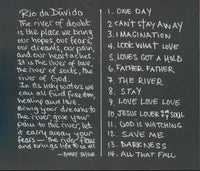 Rio da Dúvida
The river of doubt
is the place we bring
our hopes, our fears,
our dreams, our pain,
and our heartaches.
It is the river of love,
the river of souls, the
river of God.
In its holy waters we
can all find freedom,
healing and love.
Bring your dreams to
the river, give your
pain to the river, let
it carry away your
fears — the river flows
and brings life to us all
— BARRY TAYLOR
1. ONE DAY
2. CAN'T STAY AWAY
3. IMAGINATION
4. LOOK WHAT LOVE
5. LOVES GOT A HOLD
6. FATHER FATHER
7. THE RIVER
8. STAY
9. LOVE LOVE LOVE
10. JESUS LOVER OF MY SOUL
11. GOD IS WATCHING
12. SAVE ME
13. DARKNESS
14. ALL THAT FALL